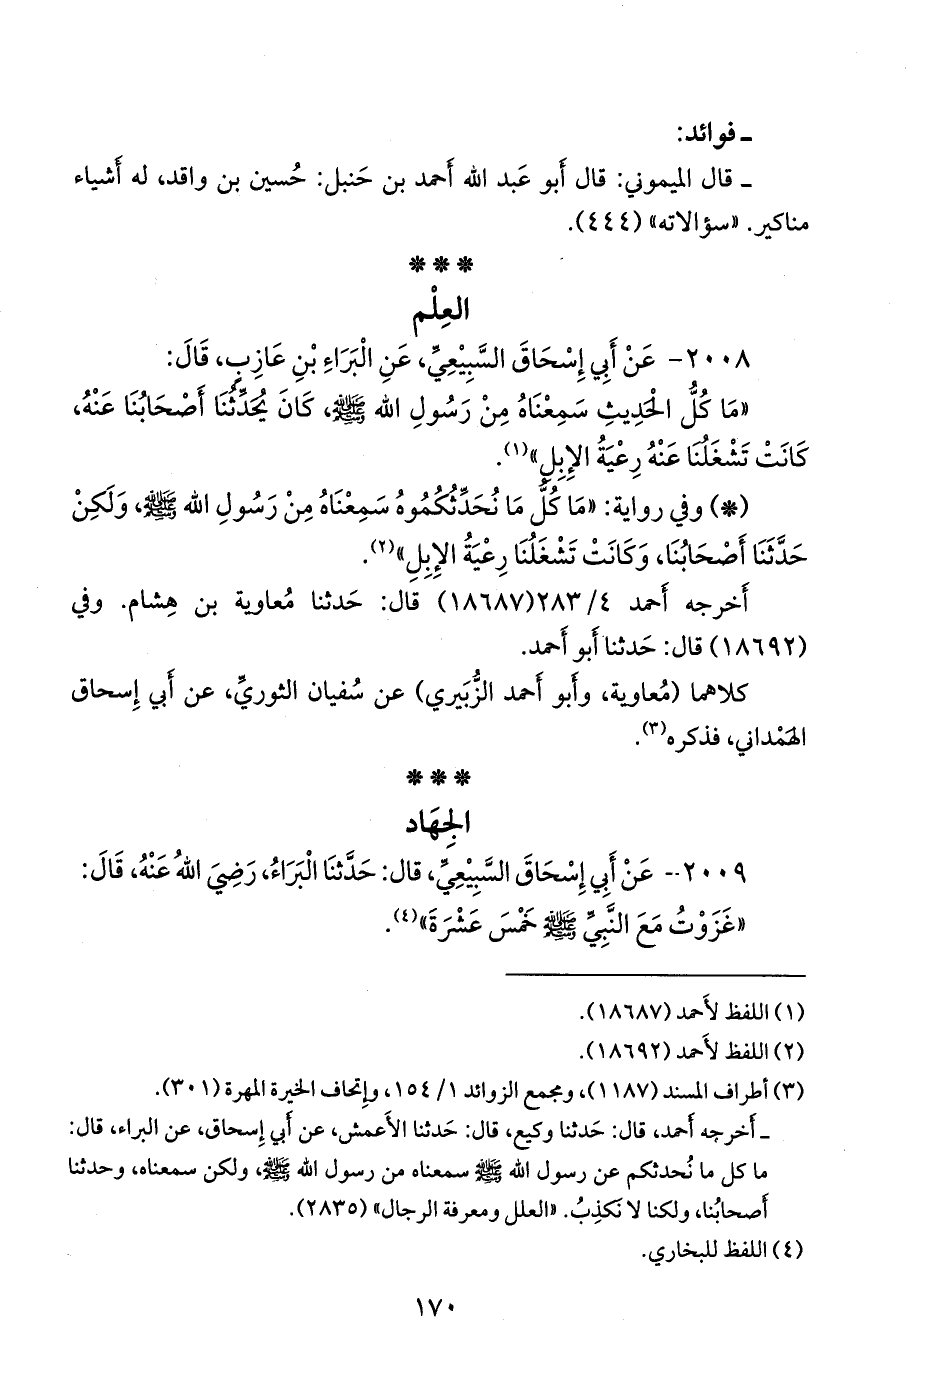 ـ فوائد:
ـ قال الميموني: قال أَبو عَبد الله أَحمد بن حَنبل: حُسين بن واقد، له أَشياء
مناكير. «سؤالاته» (٤٤٤).
***
العِلْم
٢٠٠٨- عَنْ أَبِي إِسْحَاقَ السَّبِيْعِيِّ، عَنِ الْبَرَاءِ بْنِ عَازِبٍ، قَالَ:
«مَا كُلُّ الْحَدِيثِ سَمِعْنَاهُ مِنْ رَسُولِ الله ﷺ، كَانَ يُحَدِّثُنَا أَصْحَابُنَا عَنْهُ،
كَانَتْ تَشْغَلُنَا عَنْهُ رِعْيَةُ الإِبِلِ»(١).
(*) وفي رواية: «مَا كُلُّ مَا نُحَدِّثُكُمُوهُ سَمِعْنَاهُ مِنْ رَسُولِ الله ﷺ، وَلَكِنْ
حَدَّثَنَا أَصْحَابُنَا، وَكَانَتْ تَشْغَلُنَا رِعْيَةُ الإِبِلِ»(٢).
أَخرجه أَحمد ٤/ ٢٨٣(١٨٦٨٧) قال: حَدثنا مُعاوية بن هِشام. وفي
(١٨٦٩٢) قال: حَدثنا أَبو أَحمد.
كلاهما (مُعاوية، وأَبو أَحمد الزُّبَيري) عن سُفيان الثوريِّ، عن أَبي إِسحاق
الهَمْداني، فذكره(٣).
***
الجِهَاد
٢٠٠٩- عَنْ أَبِي إِسْحَاقَ السَّبِيْعِيِّ، قال: حَدَّثَنَا الْبَرَاءُ، رَضِيَ اللهُ عَنْهُ، قَالَ:
«غَزَوْتُ مَعَ النَّبِيِّ ﷺ خَمْسَ عَشْرَةَ»(٤).
(١) اللفظ لأَحمد (١٨٦٨٧).
(٢) اللفظ لأَحمد (١٨٦٩٢).
(٣) أطراف المسند (١١٨٧)، ومجمع الزوائد ١/ ١٥٤، وإِتحاف الخيرة المهرة (٣٠١).
ـ أَخرجه أَحمد، قال: حَدثنا وكيع، قال: حَدثنا الأَعمش، عن أَبي إِسحاق، عن البراء، قال:
ما كل ما نُحدثكم عن رسول الله ﷺ سمعناه من رسول الله ﷺ، ولكن سمعناه، وحدثنا
أَصحابُنا، ولكنا لا نَكذِبُ. «العلل ومعرفة الرجال» (٢٨٣٥).
(٤) اللفظ للبخاري.
١٧٠